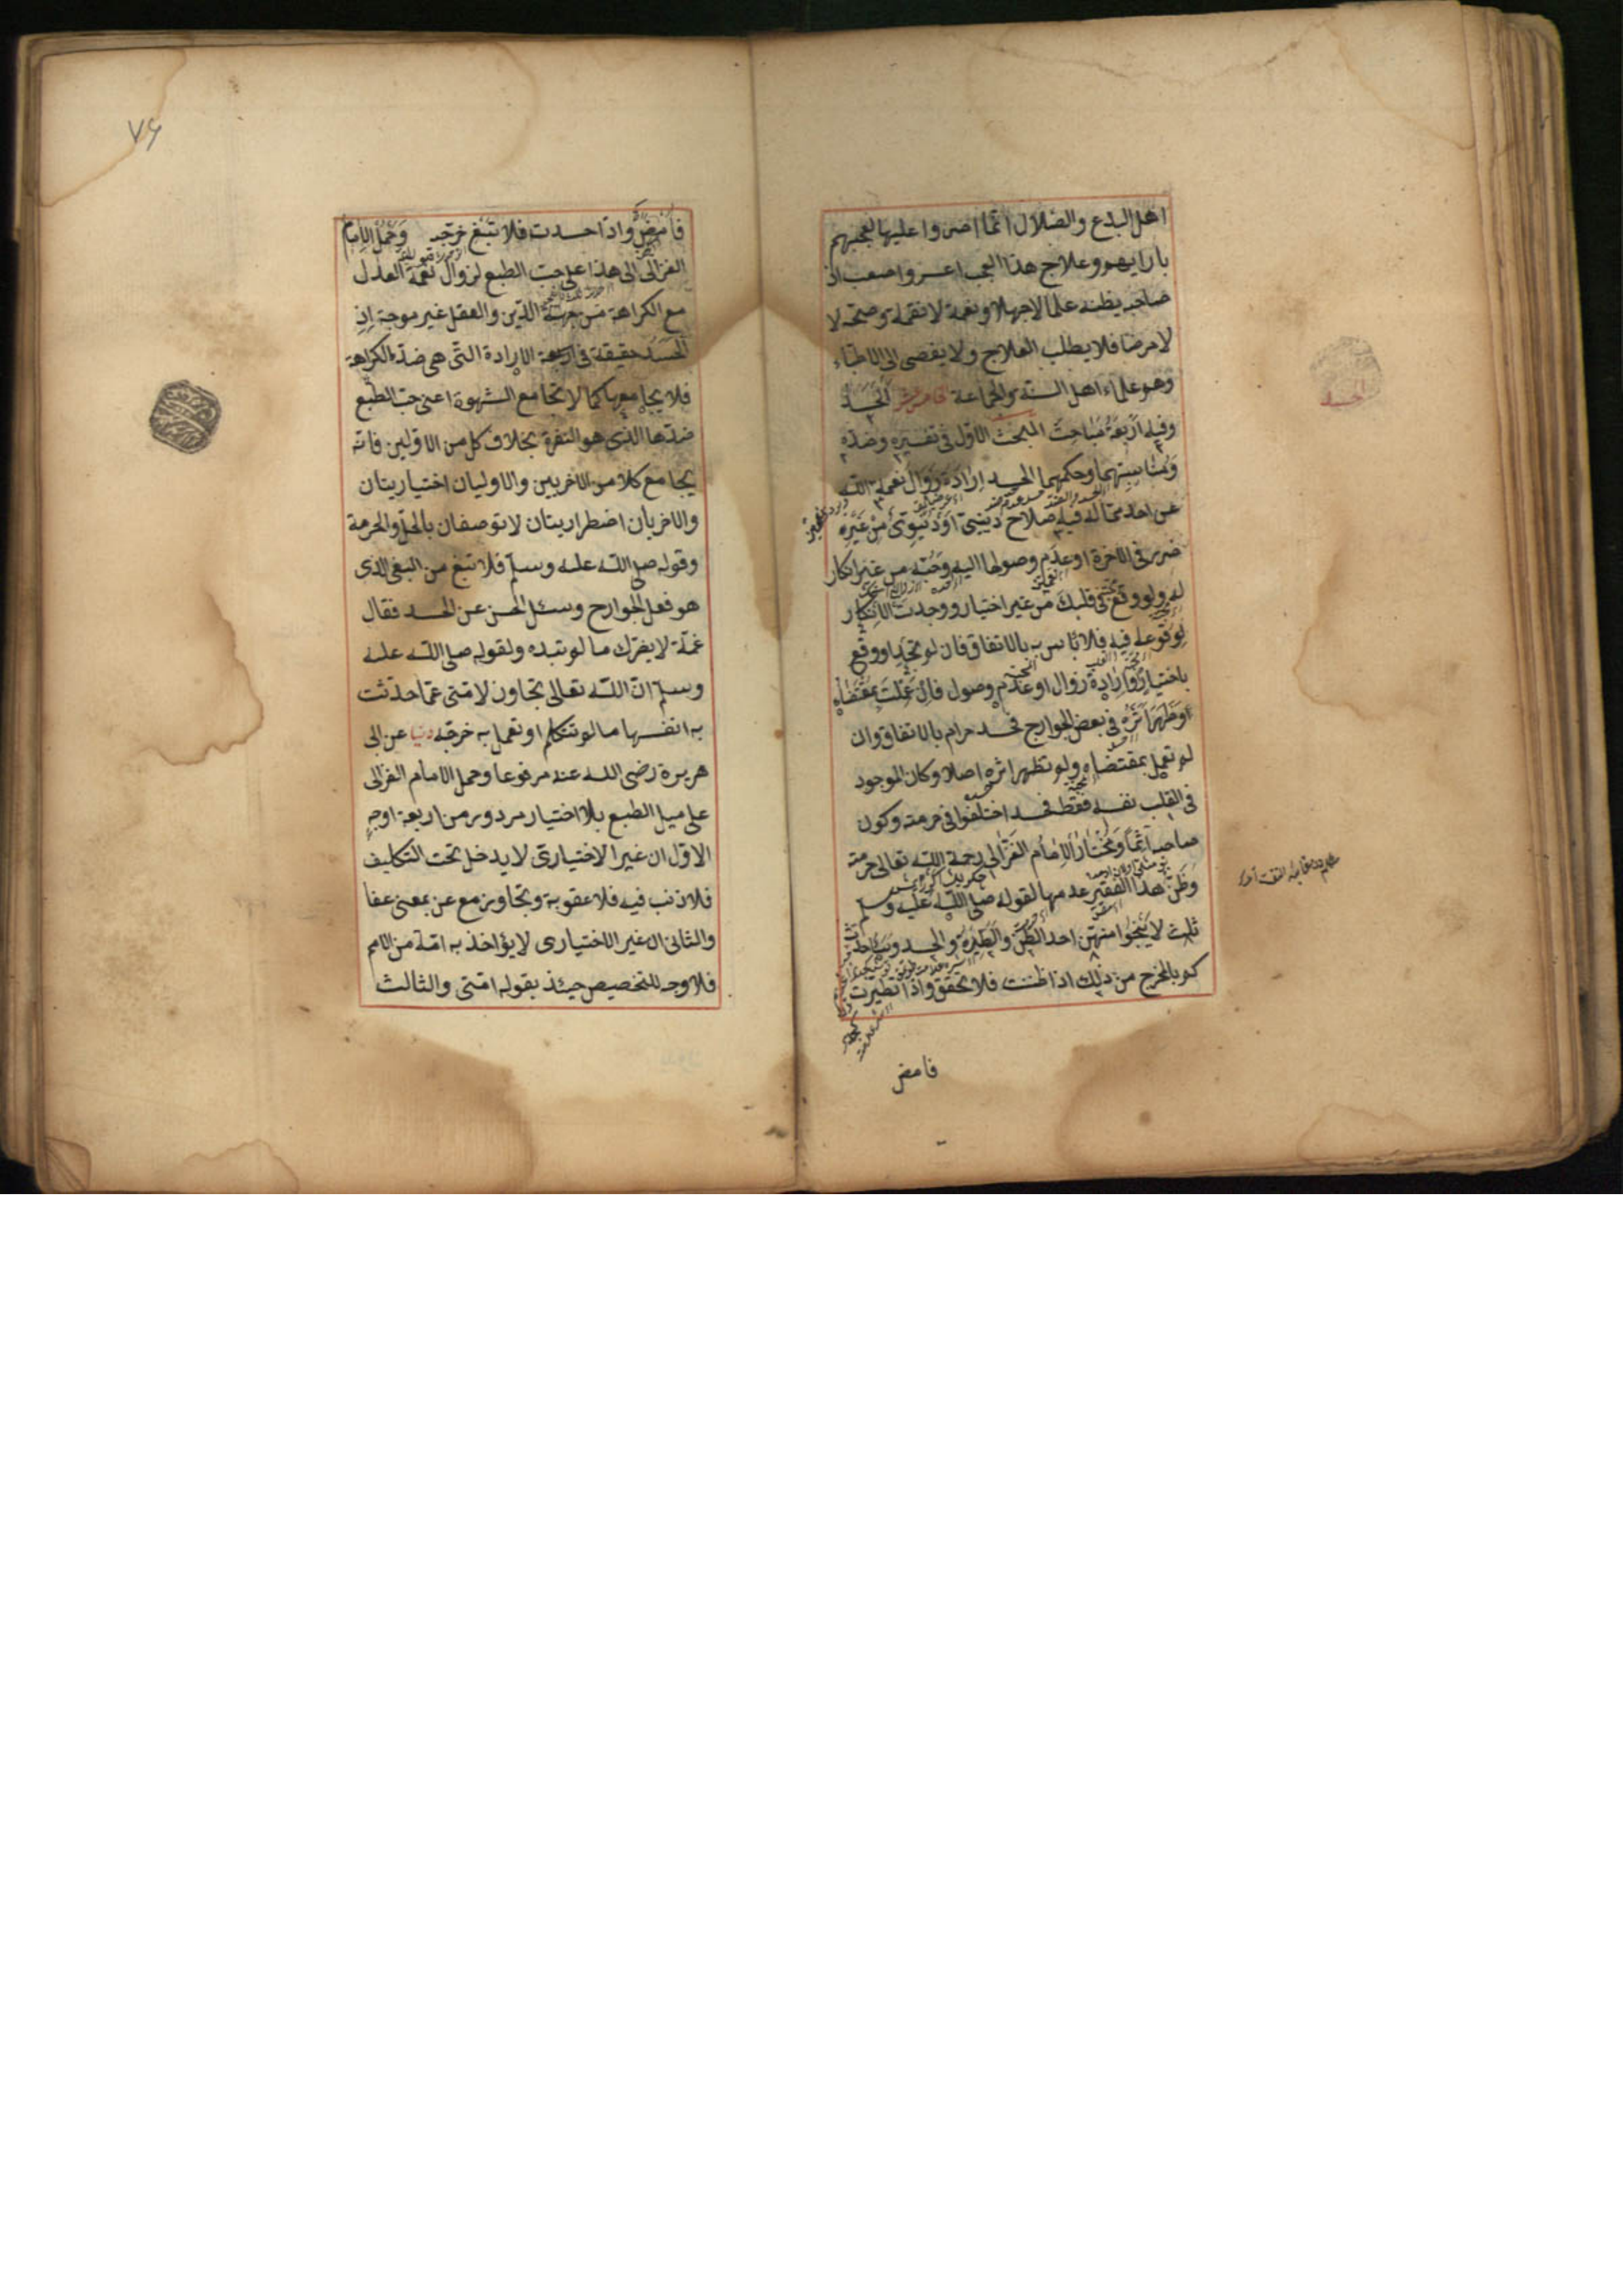 اهل البدع والضلال انما اصروا عليها لعجبهم
بارايهم وعلاج هذا العجب اعسر واصعب اذ
صاحبه يظنه علما لا جهلا ونعمة لا نقمة وصحة لا
لا مرضا فلا يطلب العلاج ولا يصغى الى الاطباء
وهو علماء اهل السنة والجماعة خامس عشر الحسد
وفيه اربعة مباحث المبحث الاول فى تفسيره وضده
ومناسبتهما وحكمهما الحسد ارادة زوال نعمة الله
عن احد مما له فيه صلاح دينى او دنيوى من غير
ضرر فى الاخرة او عدم وصولها اليه وحبه من غير انكار
له ولو وقع فى قلبك من غير اختيار ووجدت الانكار
لوقوعه فيه فلا باس به بالاتفاق فان لم تجد او وقع
باختيار وارادة زوال او عدم وصول فان عملت بمقتضاه
او ظهر اثره فى بعض الجوارح فحسد حرام بالاتفاق وان
لم تعمل بمقتضاه ولم تظهر اثره اصلا وكان الموجود
فى القلب نفسه فقط فحسد اختلفوا فى حرمته وكون
صاحبه اثما ومختار الامام الغزالى رحمة الله تعالى حرمته
وظن هذا الفقير عدمها لقوله صلى الله عليه وسلم
ثلث لا ينجوا منهن احد الظن والطيرة والحسد وساحدث
كم بالمخرج من ذلك اذا ظننت فلا تحقق واذا تطيرت
فامض
الحسد
٧۶
فامض واذا حسدت فلا تبغ خرجه وحمل الامام
الغزالى الى هذا على حب الطبع لزوال نعمة العدل
مع الكراهة من جهة الدين والعقل غير موجه اذ
الحسد حقيقة فى الارادة التى هى ضد الكراهة
فلا يجامعها كما لا تجامع الشهوة اعنى حب الطبع
ضدها الذى هو النفرة بخلاف كل من الاولين فانه
يجامع كلا من الاخريين والاوليان اختياريتان
والاخريان اضطراريتان لا توصفان بالحل والحرمة
وقوله صلى الله عليه وسلم فلا تبغ من البغى الذى
هو فعل الجوارح وسئل الحسن عن الحسد فقال
غمه لا يضرك ما لم تبده ولقوله صلى الله عليه
وسلم ان الله تعالى تجاوز لامتى عما حدثت
به انفسها ما لم تتكلم او تعمل به خرجه دنيا عن ابى
هريرة رضى الله عنه مرفوعا وحمل الامام الغزالى
على ميل الطبع بلا اختيار مردود من اربعة اوجه
الاول ان غير الاختيارى لا يدخل تحت التكليف
فلا ذنب فيه فلا عقوبة وتجاوز مع عن بمعنى عفا
والثانى ان غير الاختيارى لا يؤاخذ به امة من الامم
فلا وجه للتخصيص حينئذ بقوله امتى والثالث